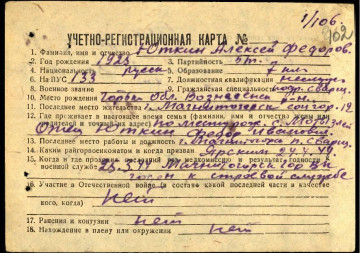 1/106.
902
УЧЕТНО-РЕГИСТРАЦИОННАЯ КАРТА №
1. Фамилия, имя и отчество Юткин Алексей Федоров.
2. Год рождения 1925 3. Партийность б/п.
4. Национальность русск 5. Образование 7 кл.
6. На ВУС 133 7. Должностная квалификация
8. Военное звание 9. Гражданская специальность сварщ.
10. Место рождения Горьк. обл. Вознесен р-н.
11. Последнее место жительства г. Магнитогорск
12. Где проживает в настоящее время семья (фамилия, имя и отчество жены или
родителей и точный адрес) По
Отец Юткин Федор Иванович
13. Последнее место работы и должность г. Магнитогор сварщ.
14. Каким райвоенкоматом и когда призван 24.4.44
15. Когда и где прошел последний раз медкомиссию и результат годности к
военной службе 25.3.44 Магнитогорск Гор ВК
годен к строевой службе
16. Участие в Отечественной войне (в составе какой последней части в качестве
кого, когда) нет
17. Ранения и контузии нет
18. Нахождение в плену или окружении нет